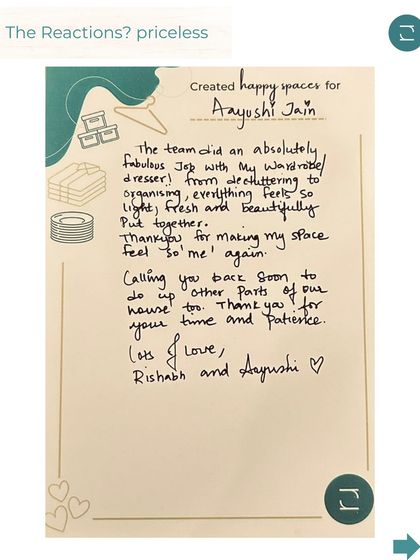 The Reactions? priceless
Created happy spaces for
Aayushi Jain
The team did an absolutely
fabulous Job with My Wardrobe/
dresser! from decluttering to
organising, everything feels so
light, fresh and beautifully
Put together.
Thankyou for making my space
feel so 'me' again.
Calling you back soon to
do up other parts of our
house too. Thank you for
your time and patience.
Lots of Love,
Rishabh and Aayushi ♡